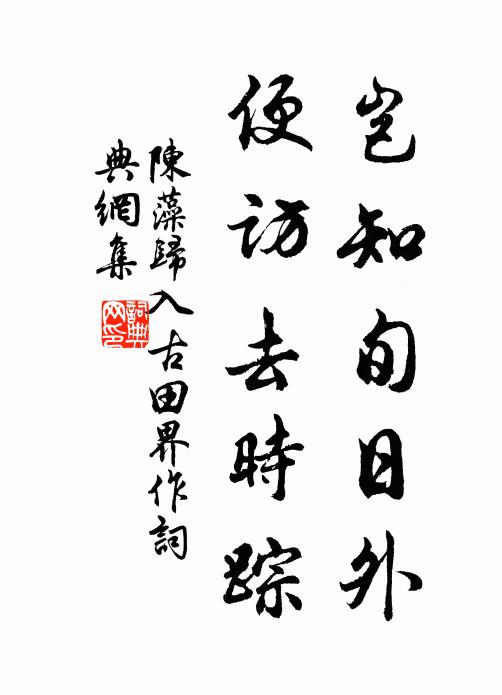 豈知旬日外
便訪去時踪
陳藻歸入古田界作詞
典網集
詞典网印